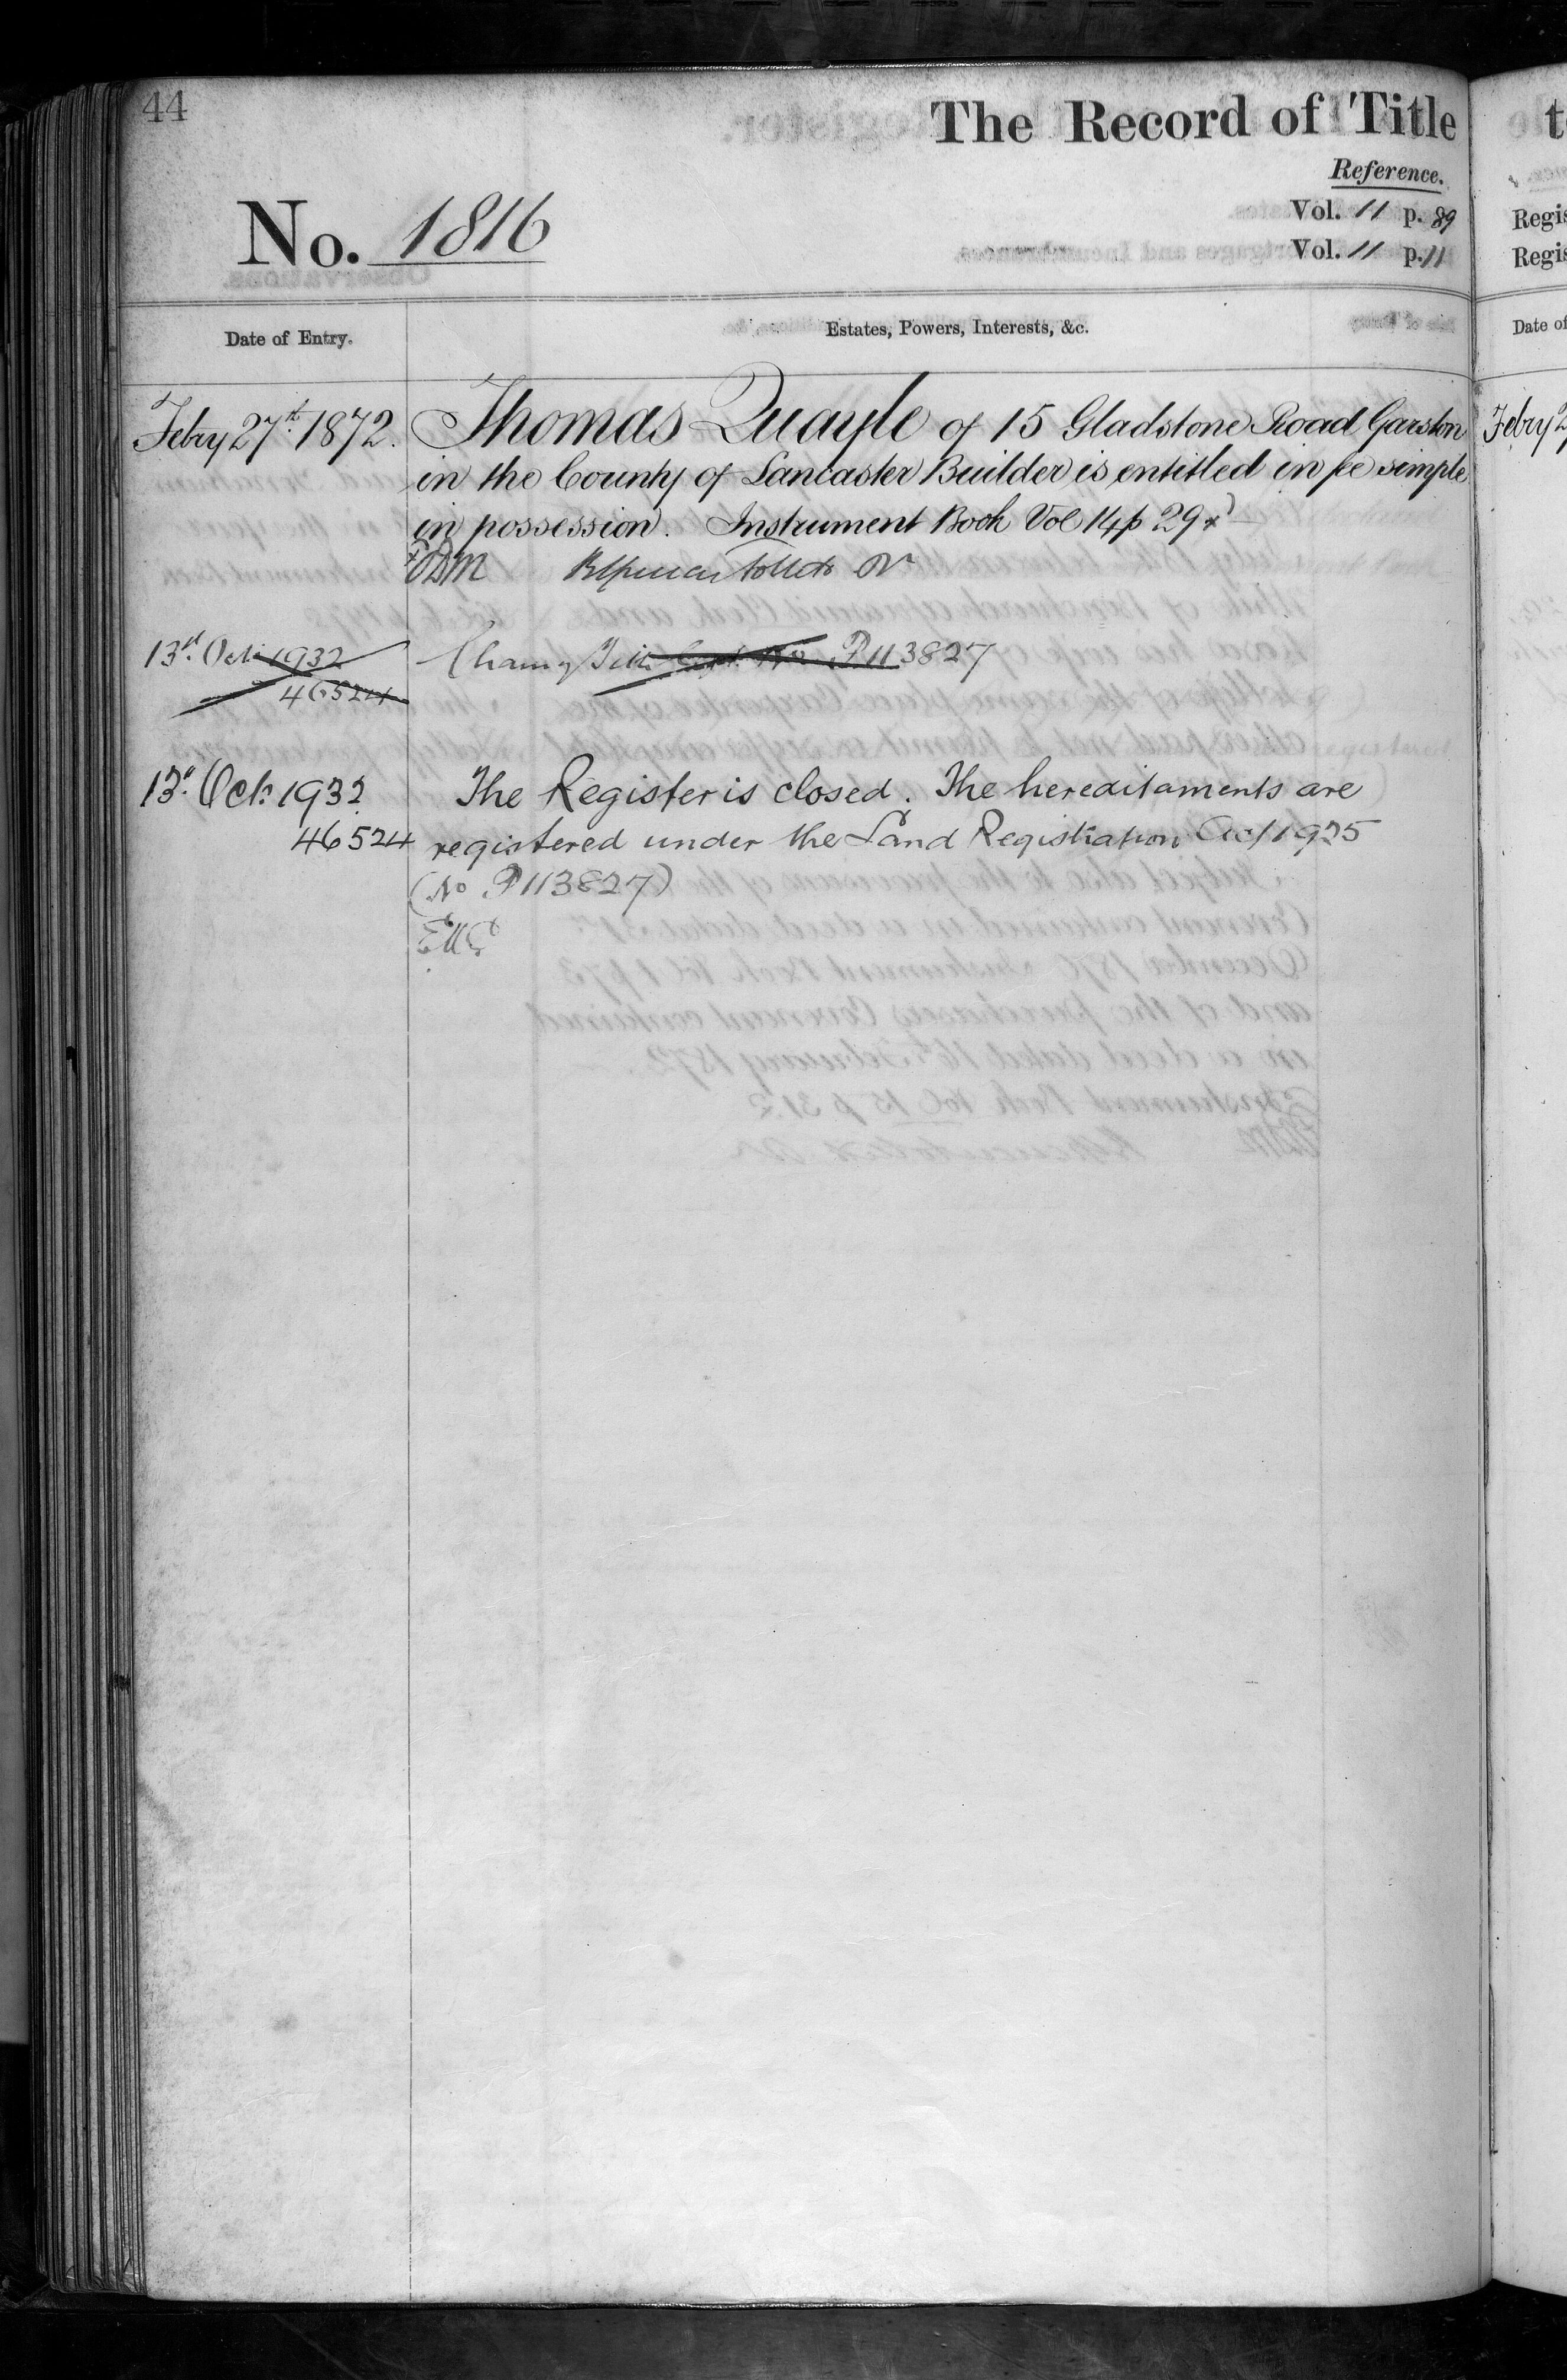 44
The Record of Title
Reference.
No. 1816
Vol. 11 p. 89
Vol. 11 p. 11
Date of Entry.
Estates, Powers, Interests, &c.
Febry 27th 1872.
Thomas Quayle of 15 Gladstone Road Garston
in the County of Lancaster Builder is entitled in fee simple
in possession. Instrument Book Vol 14 p 29 x
13th Oct 1932
46524
P113827
13th Oct 1932
46524
The Register is closed. The hereditaments are
registered under the Land Registration Act 1925
(No P113827)
t
Regis
Regis
Date of
Febry 2